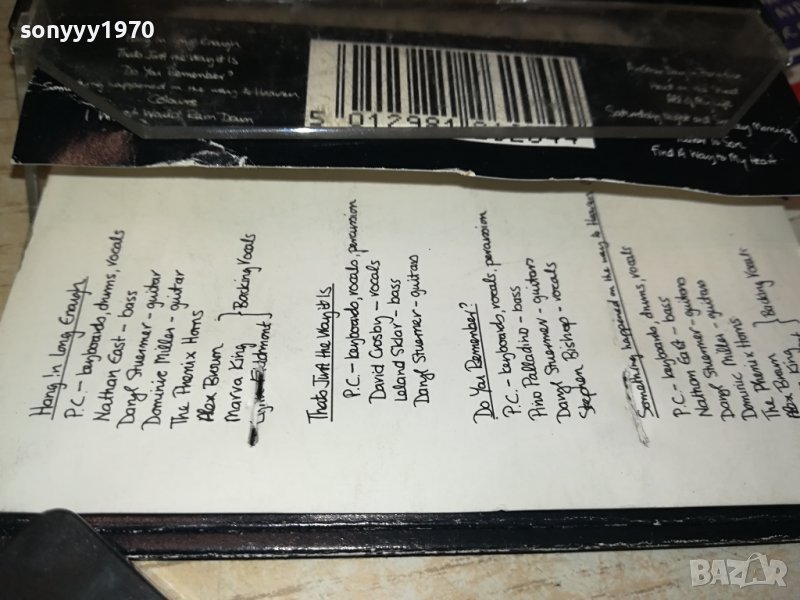 sonyyy1970
Enough
Thats Just the Way it is
Do You Remember?
Something happened on the way to Heaven
Colours
I Wish it Would Rain Down
5 012981
Find A Way to My Heart
Hang In Long Enough
P.C. - keyboards, drums, vocals
Nathan East - bass
Daryl Stuermer - guitar
Dominic Miller - guitar
The Phenix Horns
Alex Brown
Marva King
} Backing Vocals
Thats Just the Way it Is
P.C. - keyboards, vocals, percussion
David Crosby - vocals
Leland Sklar - bass
Daryl Stuermer - guitars
Do You Remember?
P.C. - keyboards, vocals, percussion
Pino Palladino - bass
Daryl Stuermer - guitars
Stephen Bishop - vocals
Something happened on the way to Heaven
P.C. - keyboards, drums, vocals
Nathan East - bass
Daryl Stuermer - guitars
Dominic Miller - guitars
The Phenix Horns
Alex Brown
} Backing Vocals
King
BAZAR